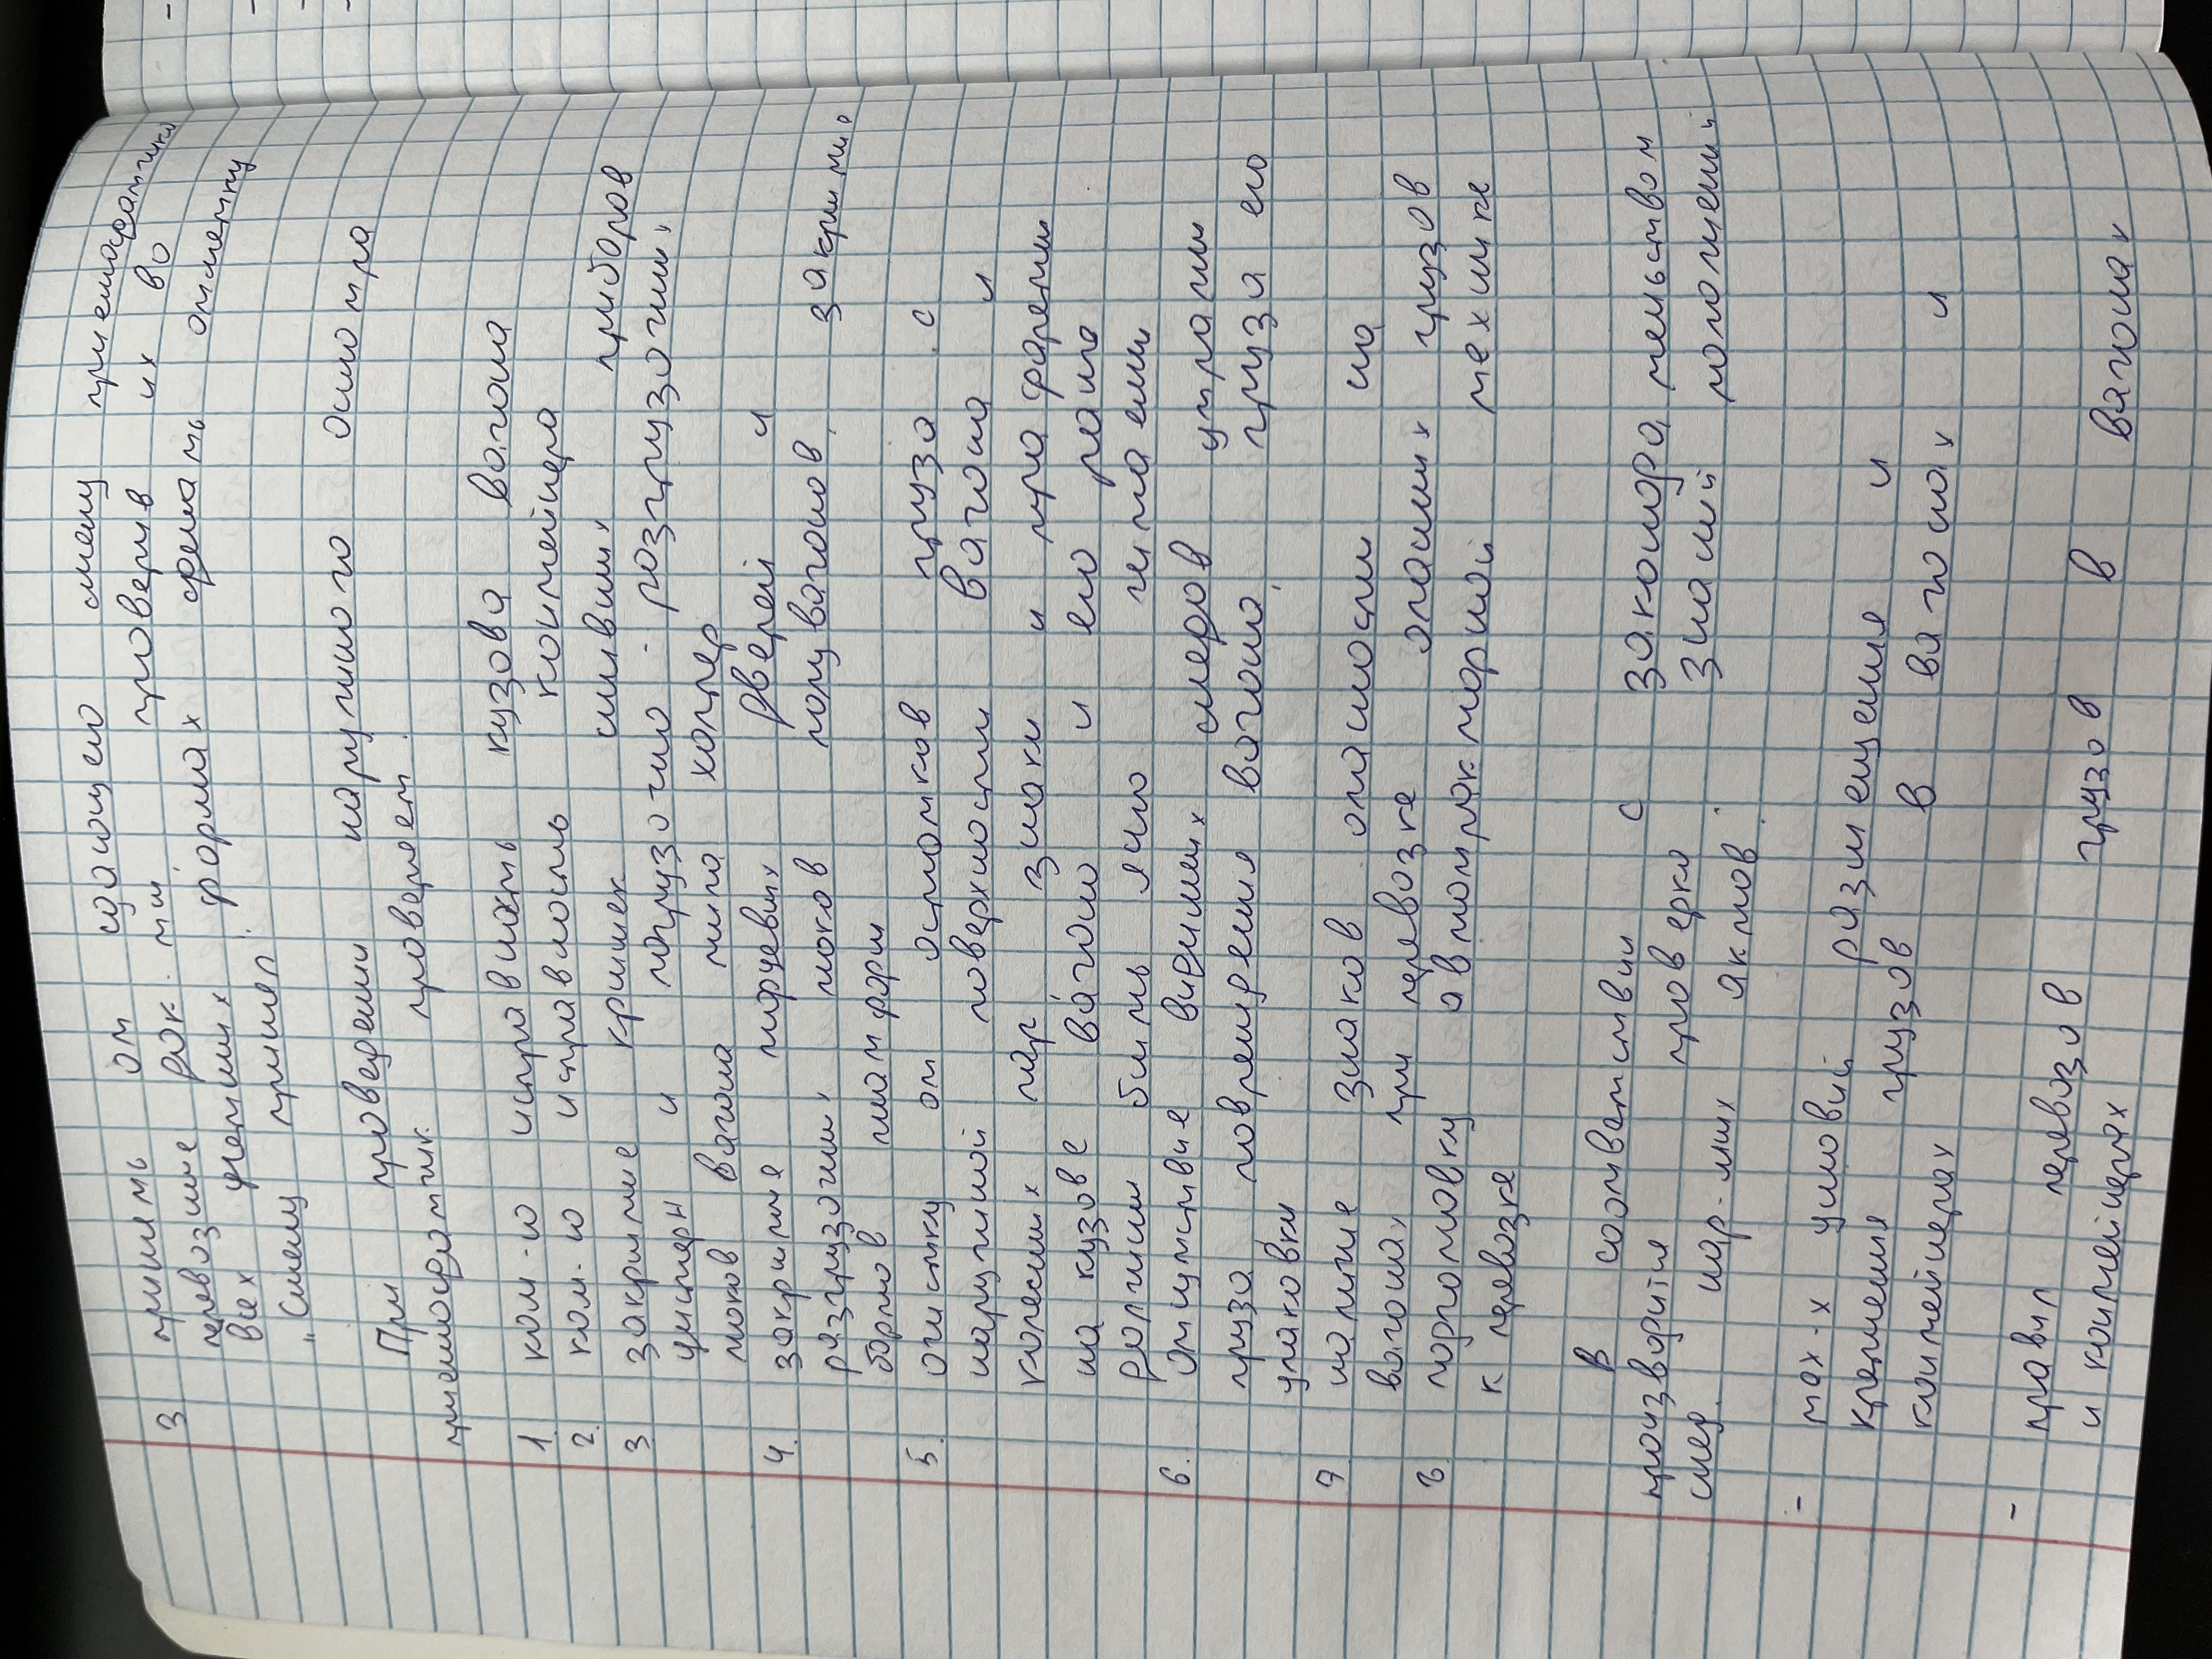 3 принять от сдающего смену приемосдатчика
перевозные док. ты, проверив их во
всех учетных формах сделать отметку
„Смену принел".
При проведении наружного осмотра
приемосдатчик проверяет.
1. ком-ю исправность кузова вагона
2. ком-ю исправность контейнера
3. закрытие крышек сливных приборов
цистерн и погрузочно-разгрузочных
люков вагона типа хоппер
4. закрытие торцевых дверей и
разгрузочных люков полувагонов, закрытие
бортов платформ
5. очистку от остатков груза с
наружной поверхности вагона и
колесных пар знаки и трафареты
на кузове вагона и его раме
должны быть ясно читаемы
6. отсутствие видимых следов утраты
груза повреждения вагона, груза его
упаковки
7 наличие знаков опасности на
вагонах при перевозке опасных грузов
8 подготовку автотракторной технике
к перевозке
В соответствии с законодательством
производится проверка знаний положений
след. нор-мных актов:
- тех-х условий размещения и
крепления грузов в вагонах и
контейнерах
- правил перевозов грузов в вагонах
и контейнерах